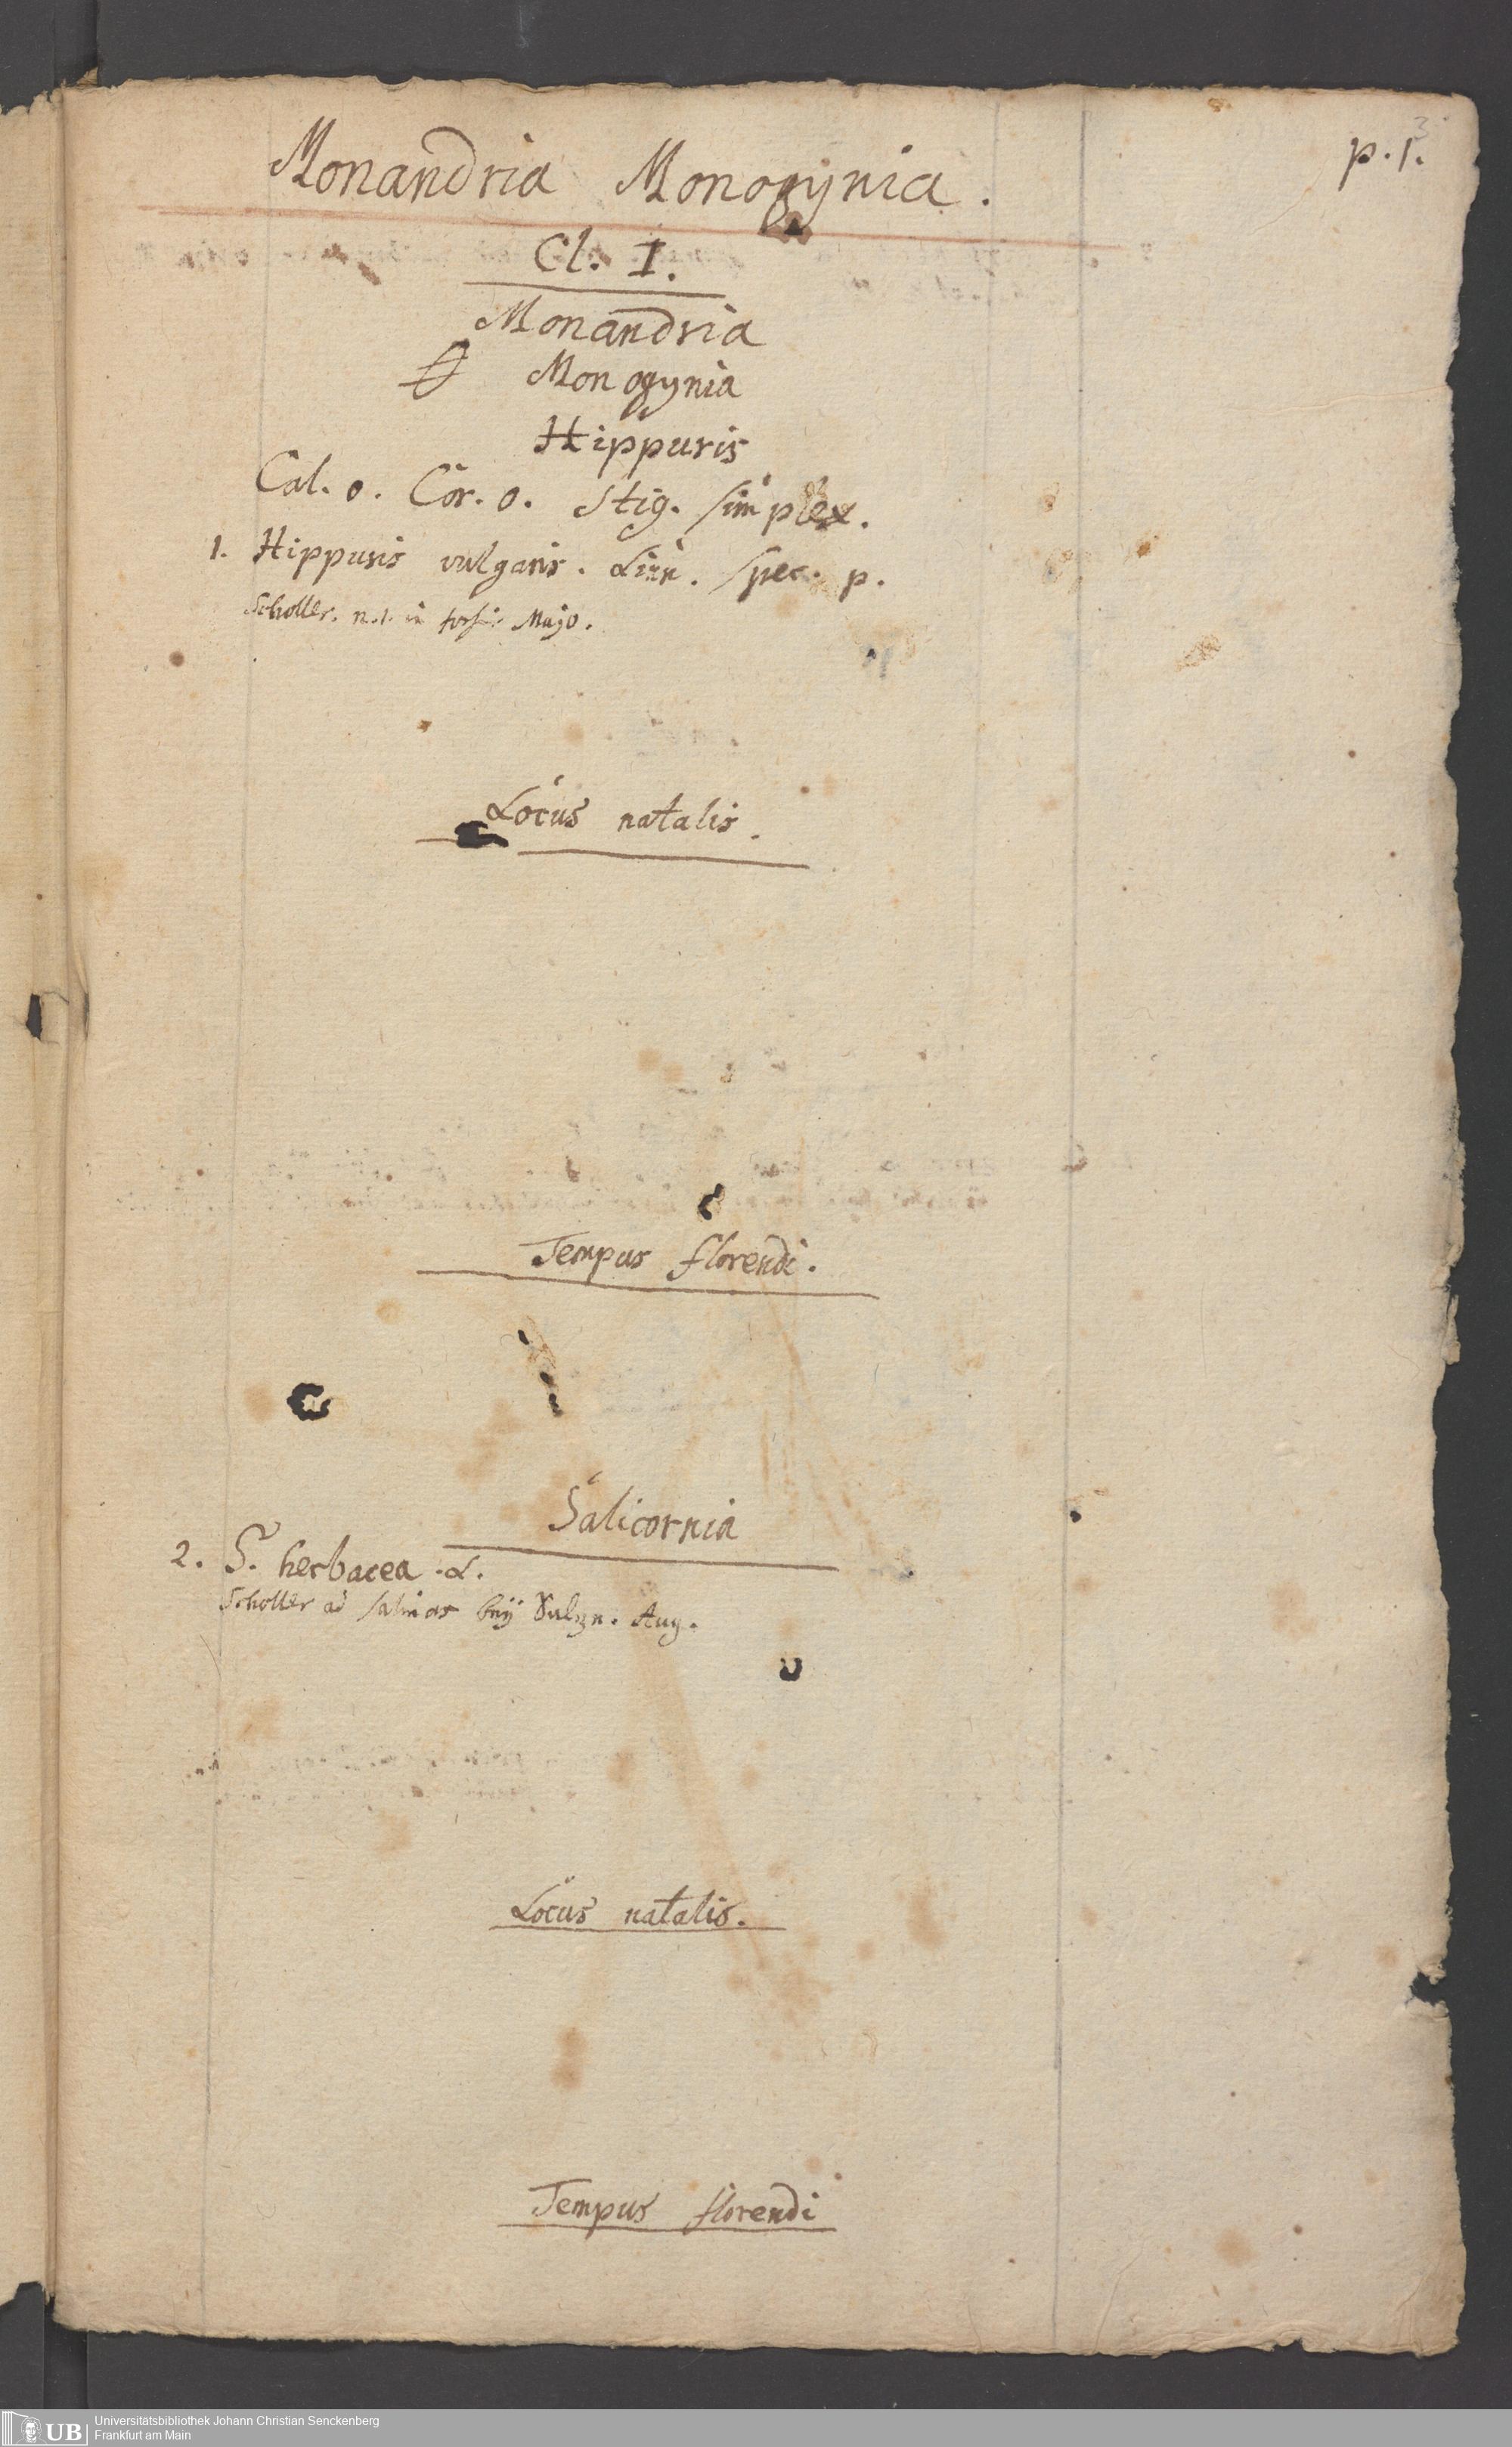 p. 1.
3
Monandria Monogynia.
Cl. I.
Monandria
Monogynia
Hippuris
Cal. o. Cor. o. Stig. simplex.
1. Hippuris vulgaris. Linn. Spec. p.
Scholler. n. 1. in Majo.
Locus natalis.
Tempus florendi.
Salicornia
2. S. herbacea. L.
Scholler ad salinas bey Sulzn. Aug.
Locus natalis.
Tempus florendi
UB
Universitätsbibliothek Johann Christian Senckenberg
Frankfurt am Main